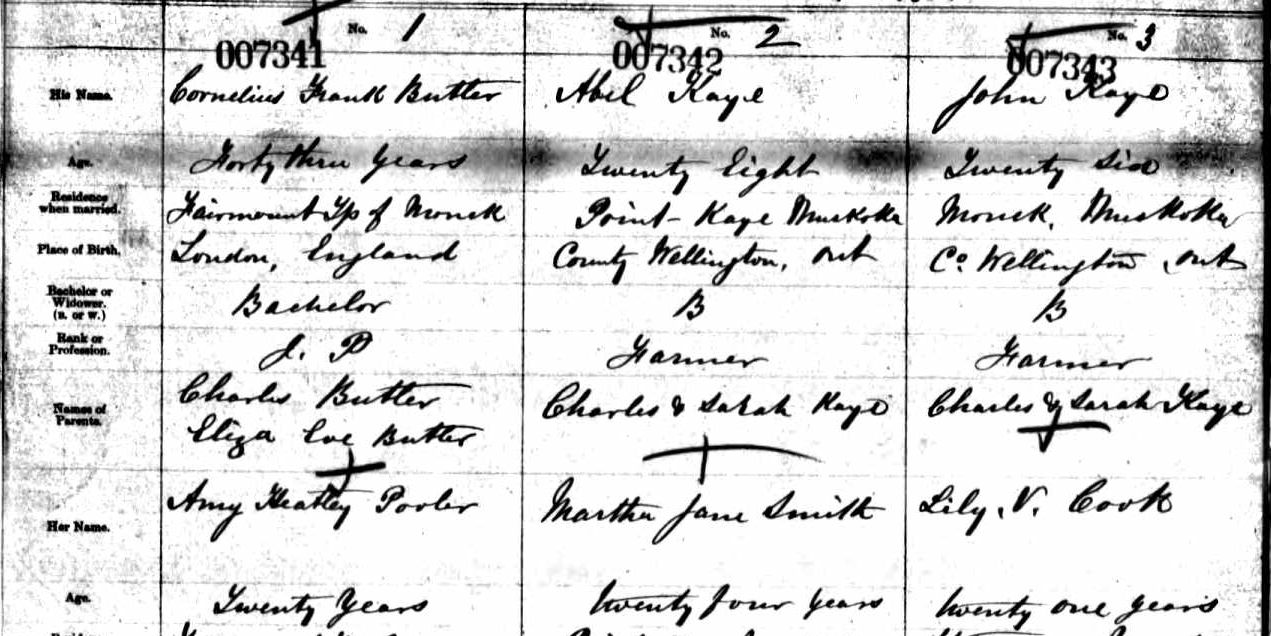 No. 1 No. 2 No. 3
007341 007342 007343
His Name. Cornelius Frank Butter Abel Kaye John Kaye
Age. Forty three years Twenty Eight Twenty Six
Residence when married. Fairmount Tp of Monck Point Kaye Muskoka Monck, Muskoka
Place of Birth. London, England County Wellington, Ont Co. Wellington, Ont
Bachelor or Widower. (B. or W.) Bachelor B B
Rank or Profession. J. P Farmer Farmer
Names of Parents. Charles Butter Charles & Sarah Kaye Charles & Sarah Kaye
Eliza Eve Butter
Her Name. Amy Heatley Pooler Martha Jane Smith Lily. V. Cook
Age. Twenty Years twenty four years twenty one years